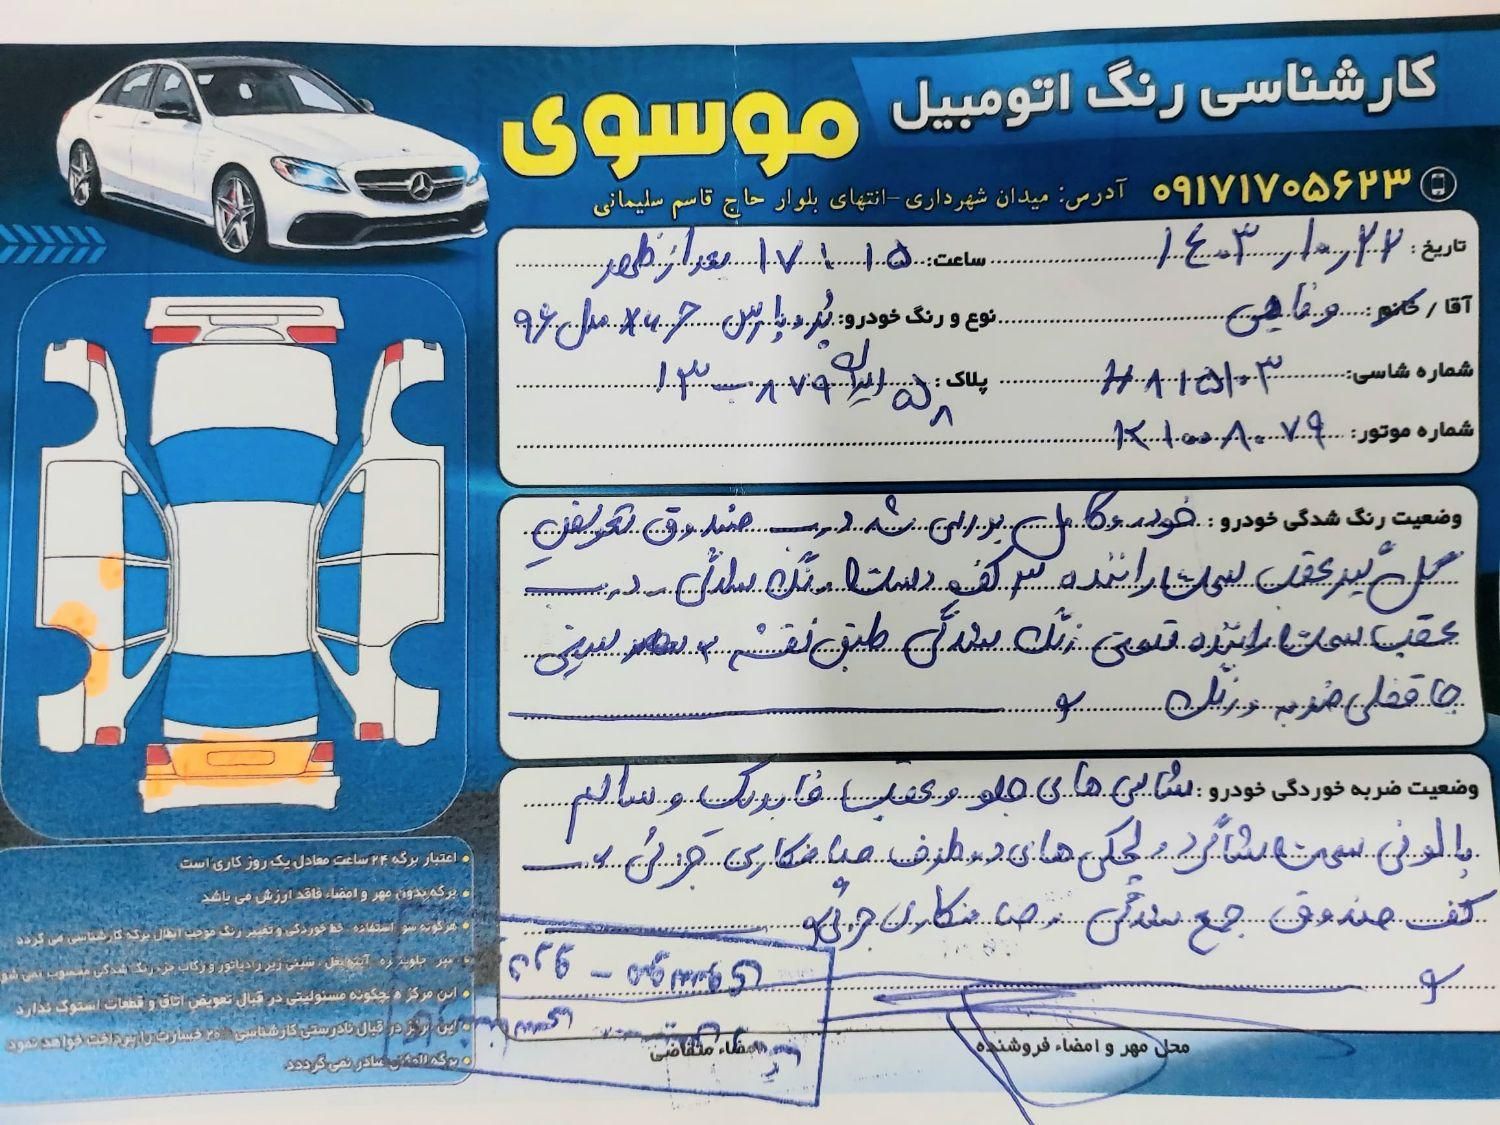 کارشناسی رنگ اتومبیل
موسوی
۰۹۱۷۱۷۰۵۶۲۳
آدرس: میدان شهرداری-انتهای بلوار حاج قاسم سلیمانی
تاریخ: ۱۴۰۳/۱۰/۲۲ ساعت: ۱۷:۱۵ بعد از ظهر
آقا / خانم: وفایی نوع و رنگ خودرو: پژو پارس مدل ۹۶
شماره شاسی: H۸۱۵۱۰۳ پلاک: ایران ۱۳
شماره موتور:
وضعیت رنگ شدگی خودرو: خودرو کامل بررسی شد درب صندوق تعویض
گل گیر عقب سمت راننده ۳ کف دست رنگ شدگی درب
عقب سمت راننده قسمتی رنگ شدگی طبق نقشه سینی
جا قفلی ضربه و رنگ
وضعیت ضربه خوردگی خودرو: شاسی های جلو و عقب فابریک و سالم
پالونی سمت شاگرد و لچکی های دو طرف صافکاری جزئی
کف صندوق جمع شدگی صافکاری جزئی
محل مهر و امضاء فروشنده
امضاء متقاضی
اعتبار برگه ۲۴ ساعت معادل یک روز کاری است
برگه بدون مهر و امضاء فاقد ارزش می باشد
هرگونه سوء استفاده، خط خوردگی و تغییر رنگ موجب ابطال برگه کارشناسی می گردد
سپر جلوپنجره آینه بغل، سینی زیر رادیاتور و رکاب جزء رنگ شدگی محسوب نمی شود
این مرکز هیچگونه مسئولیتی در قبال تعویض اتاق و قطعات استوک ندارد
این مرکز در قبال نادرستی کارشناسی خسارت را پرداخت خواهد نمود
برگه المثنی صادر نمی گردد.